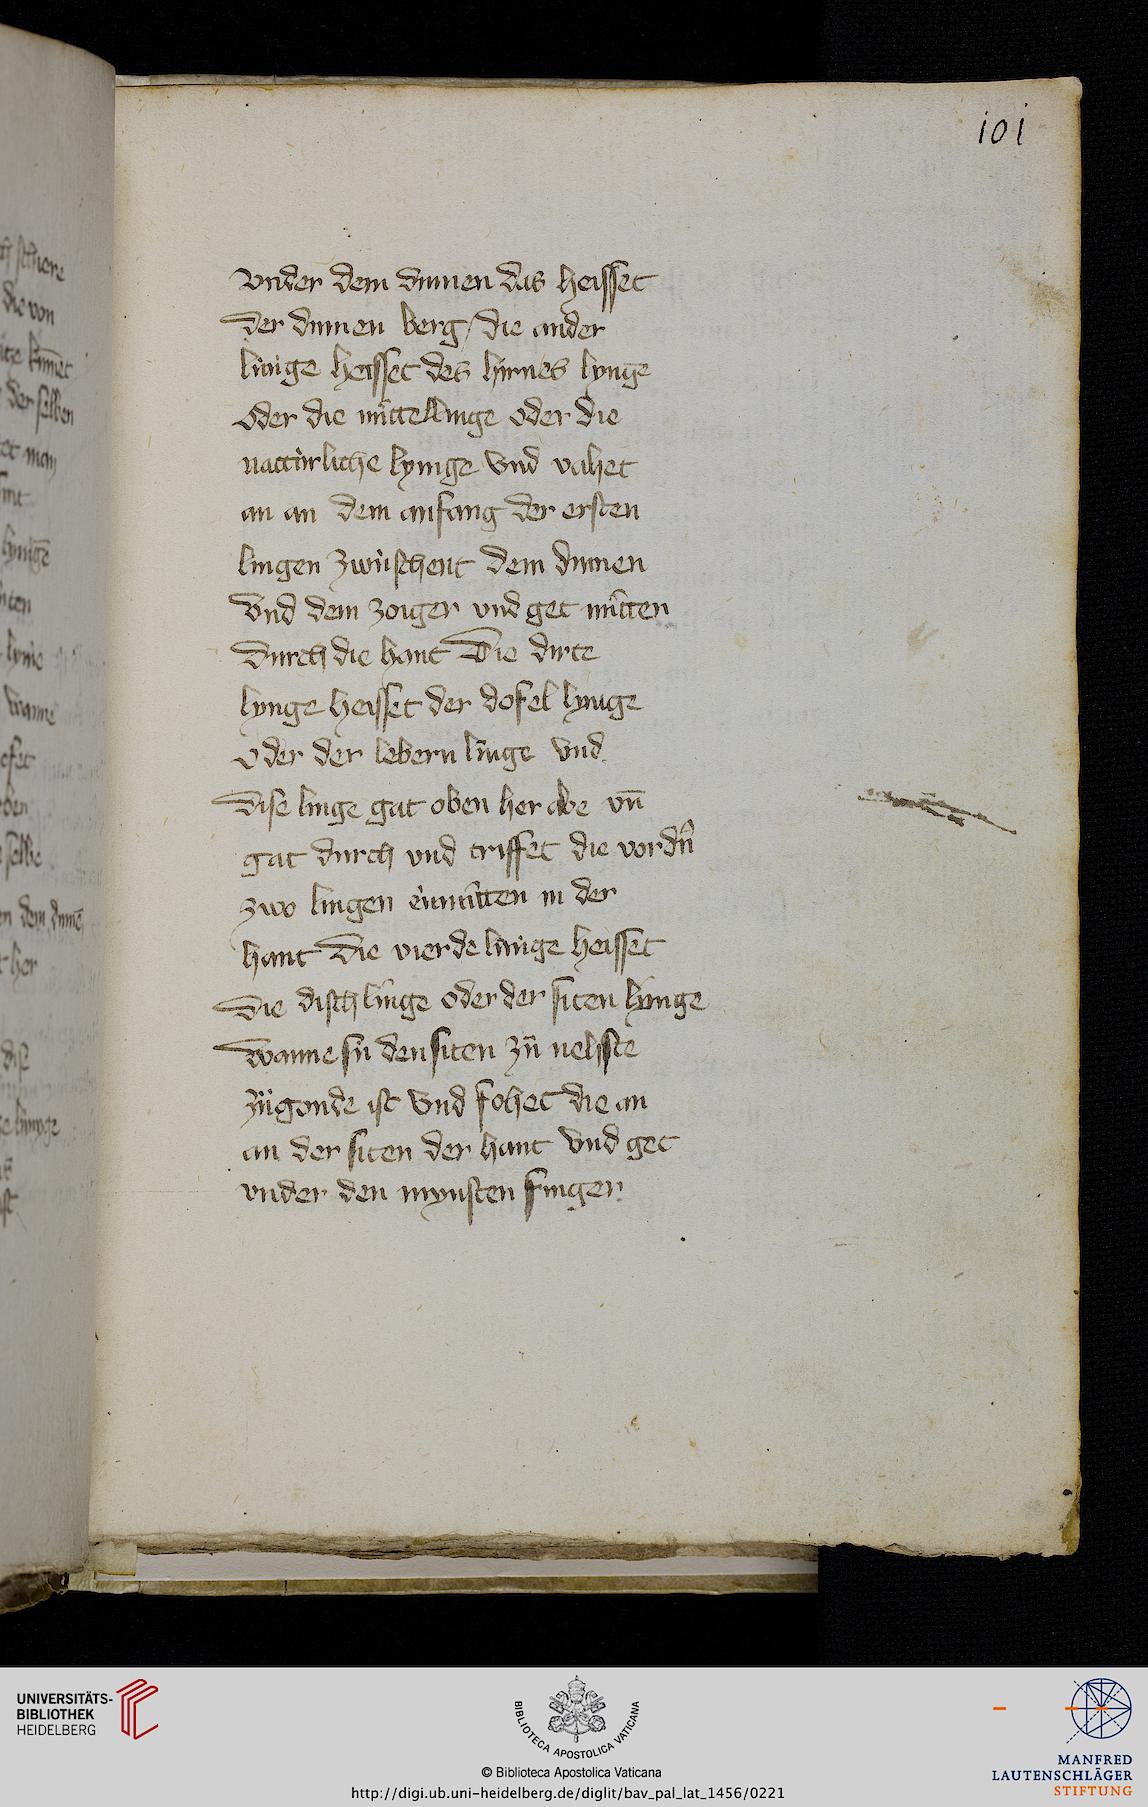 101
vnder dem dumen das heisset
der dumen berg / die ander
linige heisset des hirnes lynge
oder die mittellinge oder die
natturliche lynige vnd vahet
an an dem anfang der ersten
lingen zwüschent dem dumen
vnd dem zoiger vnd get mitten
durch die hant Die dirte
lynge heisset der dofel lynige
oder der lebern linge vnd
dise linge gat oben her abe vn̄
gat durch vnd triffet die vordn̄
zwo lingen enmitten in der
hant Die vierde linige heisset
die disch linge oder der siten lynge
wanne su den siten zü nehste
zügonde ist vnd fohet die an
an der siten der hant vnd get
vnder den mynsten finger
die von
der selben
man
wanne
oben
selbe
dem dume
her
UNIVERSITÄTS-
BIBLIOTHEK
HEIDELBERG
BIBLIOTECA APOSTOLICA VATICANA
© Biblioteca Apostolica Vaticana
http://digi.ub.uni-heidelberg.de/diglit/bav_pal_lat_1456/0221
MANFRED
LAUTENSCHLÄGER
STIFTUNG